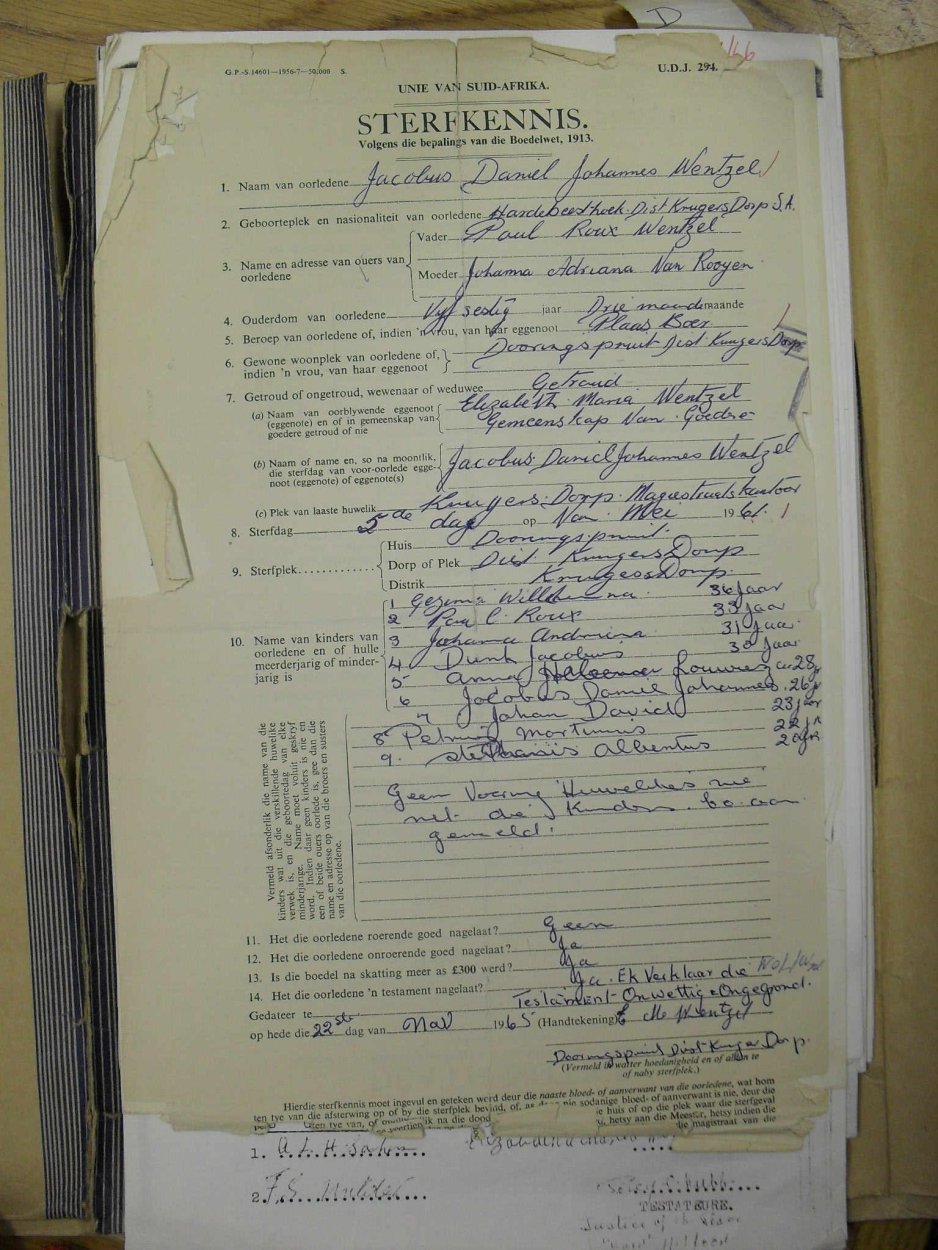 D
G.P.-S.14601—1956-7—50,000 S.
U.D.J. 294.
UNIE VAN SUID-AFRIKA.
STERFKENNIS.
Volgens die bepalings van die Boedelwet, 1913.
1. Naam van oorledene Jacobus Daniel Johannes Wentzel
2. Geboorteplek en nasionaliteit van oorledene Hardebeesthoek. Dist Krugers Dorp S.A.
3. Name en adresse van ouers van oorledene
Vader Paul Roux Wentzel
Moeder Johanna Adriana Van Rooyen
4. Ouderdom van oorledene Vyf sestig jaar Drie maande maande
5. Beroep van oorledene of, indien 'n vrou, van haar eggenoot Plaas Boer
6. Gewone woonplek van oorledene of, indien 'n vrou, van haar eggenoot Dooringspruit Dist Krugers Dorp
7. Getroud of ongetroud, wewenaar of weduwee Getroud
(a) Naam van oorblywende eggenoot (eggenote) en of in gemeenskap van goedere getroud of nie
Elizabeth Maria Wentzel
Gemeenskap Van Goedre
(b) Naam of name en, so na moontlik, die sterfdag van voor-oorlede eggenoot (eggenote) of eggenote(s)
Jacobus Daniel Johannes Wentzel
(c) Plek van laaste huwelik Krugers Dorp
8. Sterfdag 5de dag op Van Mei 1961
9. Sterfplek
Huis Dooringspruit
Dorp of Plek Dist Krugers Dorp
Distrik Krugers Dorp.
10. Name van kinders van oorledene en of hulle meerderjarig of minderjarig is
1 36 Jaar
2 Paul Roux 33 Jaar
3 Johanna 31 Jaar
4 Jacobus 30 Jaar
5 Anna Louwresa 28
6 Jacobus Daniel Johannes. 26
7 Johan David 23 Jaar
8 Petrus Martinus 22
9. Albertus
Vermeld afsonderlik die name van die
kinders wat uit die verskillende huwelike
verwek is, en die geboortedag van elke
minderjarige. Name moet voluit geskryf
word. Indien daar geen kinders is nie en
een of beide ouers oorlede is, gee dan die
name en adresse op van die broers en susters
van die oorledene.
Geen Voorige Huwelikes nie
net die Kinders. bo aan
gemeld.
11. Het die oorledene roerende goed nagelaat? Geen
12. Het die oorledene onroerende goed nagelaat? Ja
13. Is die boedel na skatting meer as £300 werd? Ja
14. Het die oorledene 'n testament nagelaat? Ja. Ek Verklaar die
Testament Onwettig Ongegrond.
Gedateer te
op hede die 22ste dag van 1965 (Handtekening) E M Wentzel
Dooringspruit Dist Kruger Dorp.
(Vermeld in watter hoedanigheid en of alban te
of naby sterfplek.)
Hierdie sterfkennis moet ingevul en geteken word deur die naaste bloed- of aanverwant van die oorledene, wat hom
ten tye van die afsterwing op of by die sterfplek bevind, of, as nie sodanige bloed- of aanverwant is nie, deur die
ten tye van, of na die dood huis of op die plek waar die sterfgeval
hetsy aan die Meester, hetsy indien die
die magistraat van die
1.
2. F.S. Mulder
TESTATEURE.
Justice of